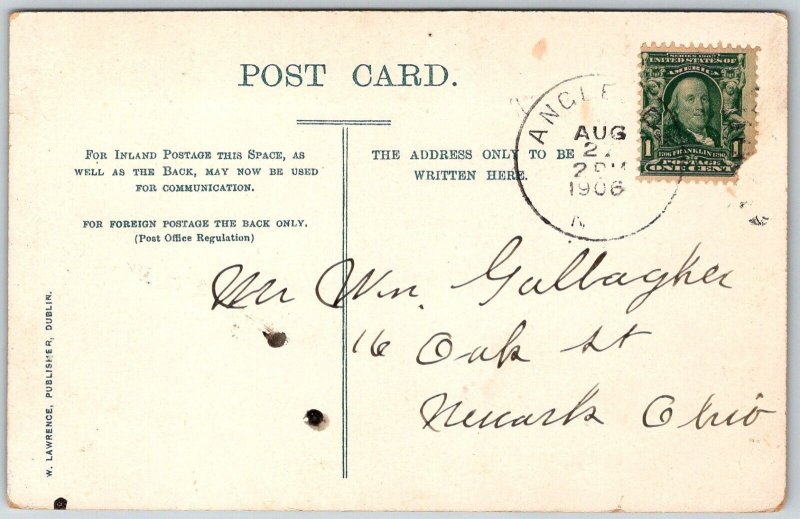 POST CARD.
FOR INLAND POSTAGE THIS SPACE, AS
WELL AS THE BACK, MAY NOW BE USED
FOR COMMUNICATION.
FOR FOREIGN POSTAGE THE BACK ONLY.
(Post Office Regulation)
THE ADDRESS ONLY TO BE
WRITTEN HERE.
W. LAWRENCE, PUBLISHER, DUBLIN.
ANGLE
AUG
2
2 PM
1906
N
SERIES 1902
UNITED STATES OF
AMERICA
1706 FRANKLIN 1790
1 POSTAGE 1
ONE CENT
Mr Wm. Gallagher
16 Oak St
Newark Ohio